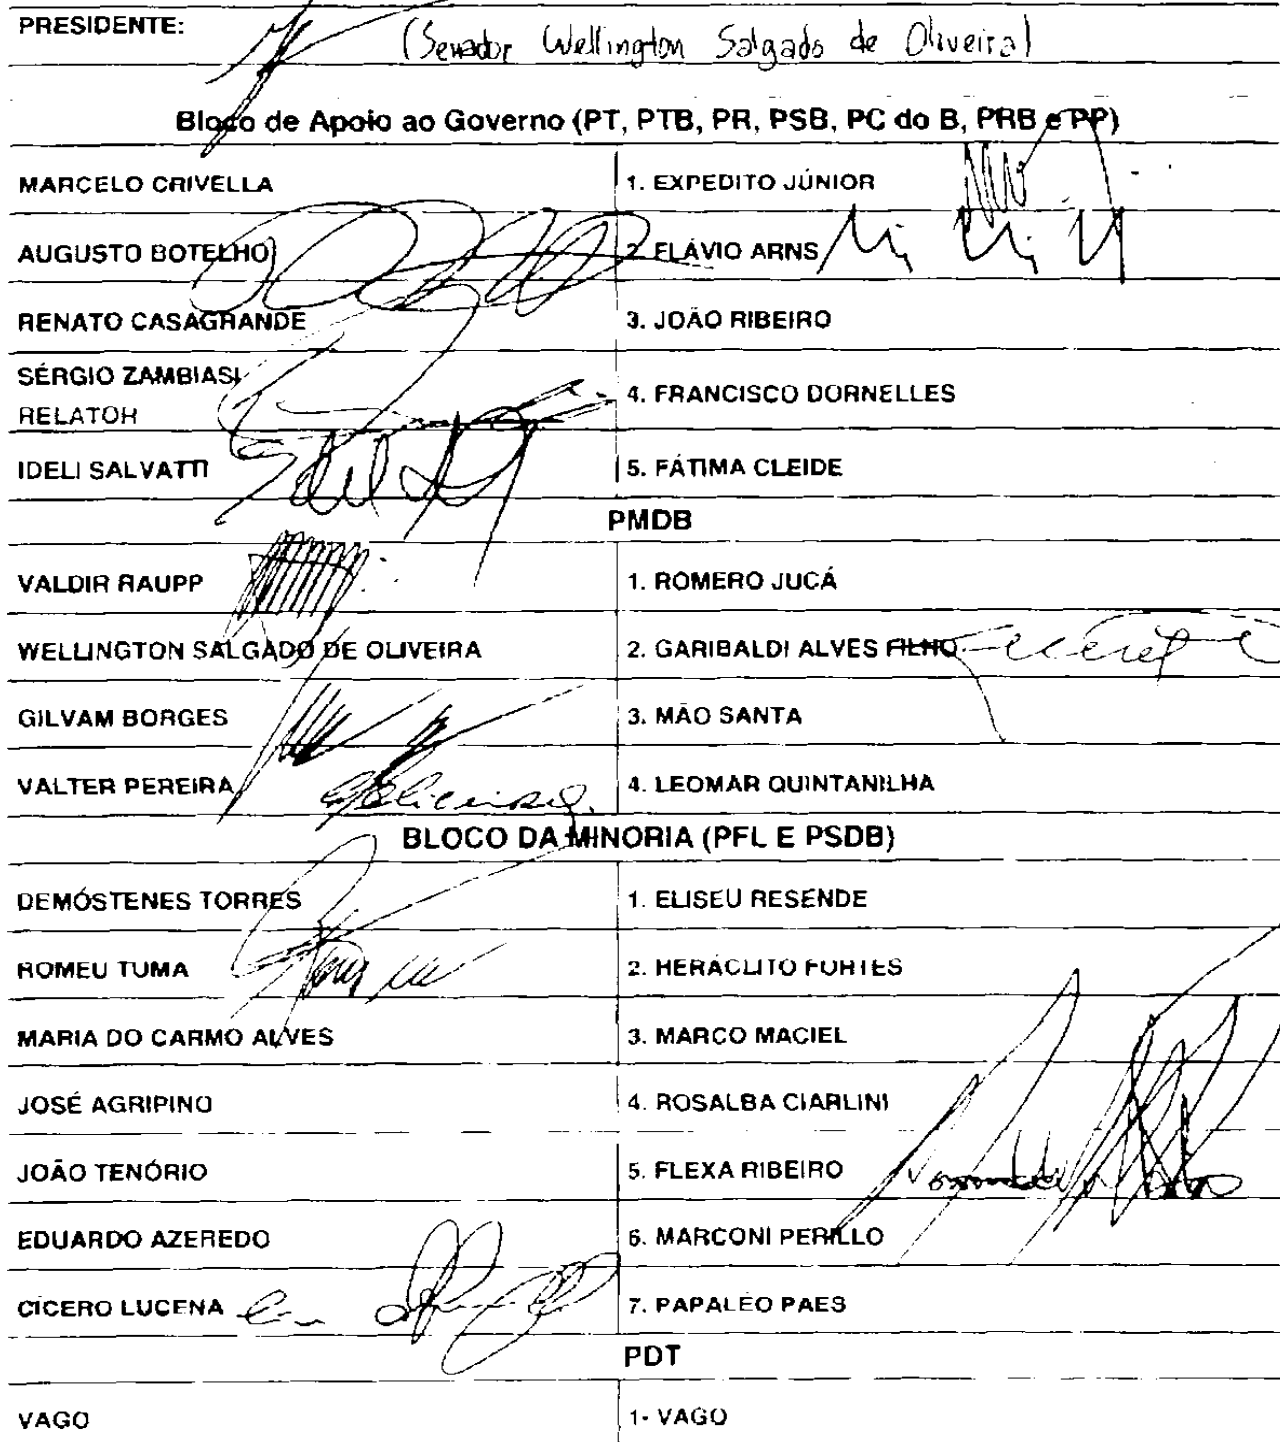 PRESIDENTE: (Senador Wellington Salgado de Oliveira)
Bloco de Apoio ao Governo (PT, PTB, PR, PSB, PC do B, PRB e PP)
MARCELO CRIVELLA 1. EXPEDITO JÚNIOR
AUGUSTO BOTELHO 2. FLÁVIO ARNS
RENATO CASAGRANDE 3. JOÃO RIBEIRO
SÉRGIO ZAMBIASI
RELATOR 4. FRANCISCO DORNELLES
IDELI SALVATTI 5. FÁTIMA CLEIDE
PMDB
VALDIR RAUPP 1. ROMERO JUCÁ
WELLINGTON SALGADO DE OLIVEIRA 2. GARIBALDI ALVES FILHO
GILVAM BORGES 3. MÃO SANTA
VALTER PEREIRA 4. LEOMAR QUINTANILHA
BLOCO DA MINORIA (PFL E PSDB)
DEMÓSTENES TORRES 1. ELISEU RESENDE
ROMEU TUMA 2. HERÁCLITO FORTES
MARIA DO CARMO ALVES 3. MARCO MACIEL
JOSÉ AGRIPINO 4. ROSALBA CIARLINI
JOÃO TENÓRIO 5. FLEXA RIBEIRO
EDUARDO AZEREDO 6. MARCONI PERILLO
CÍCERO LUCENA 7. PAPALÉO PAES
PDT
VAGO 1- VAGO